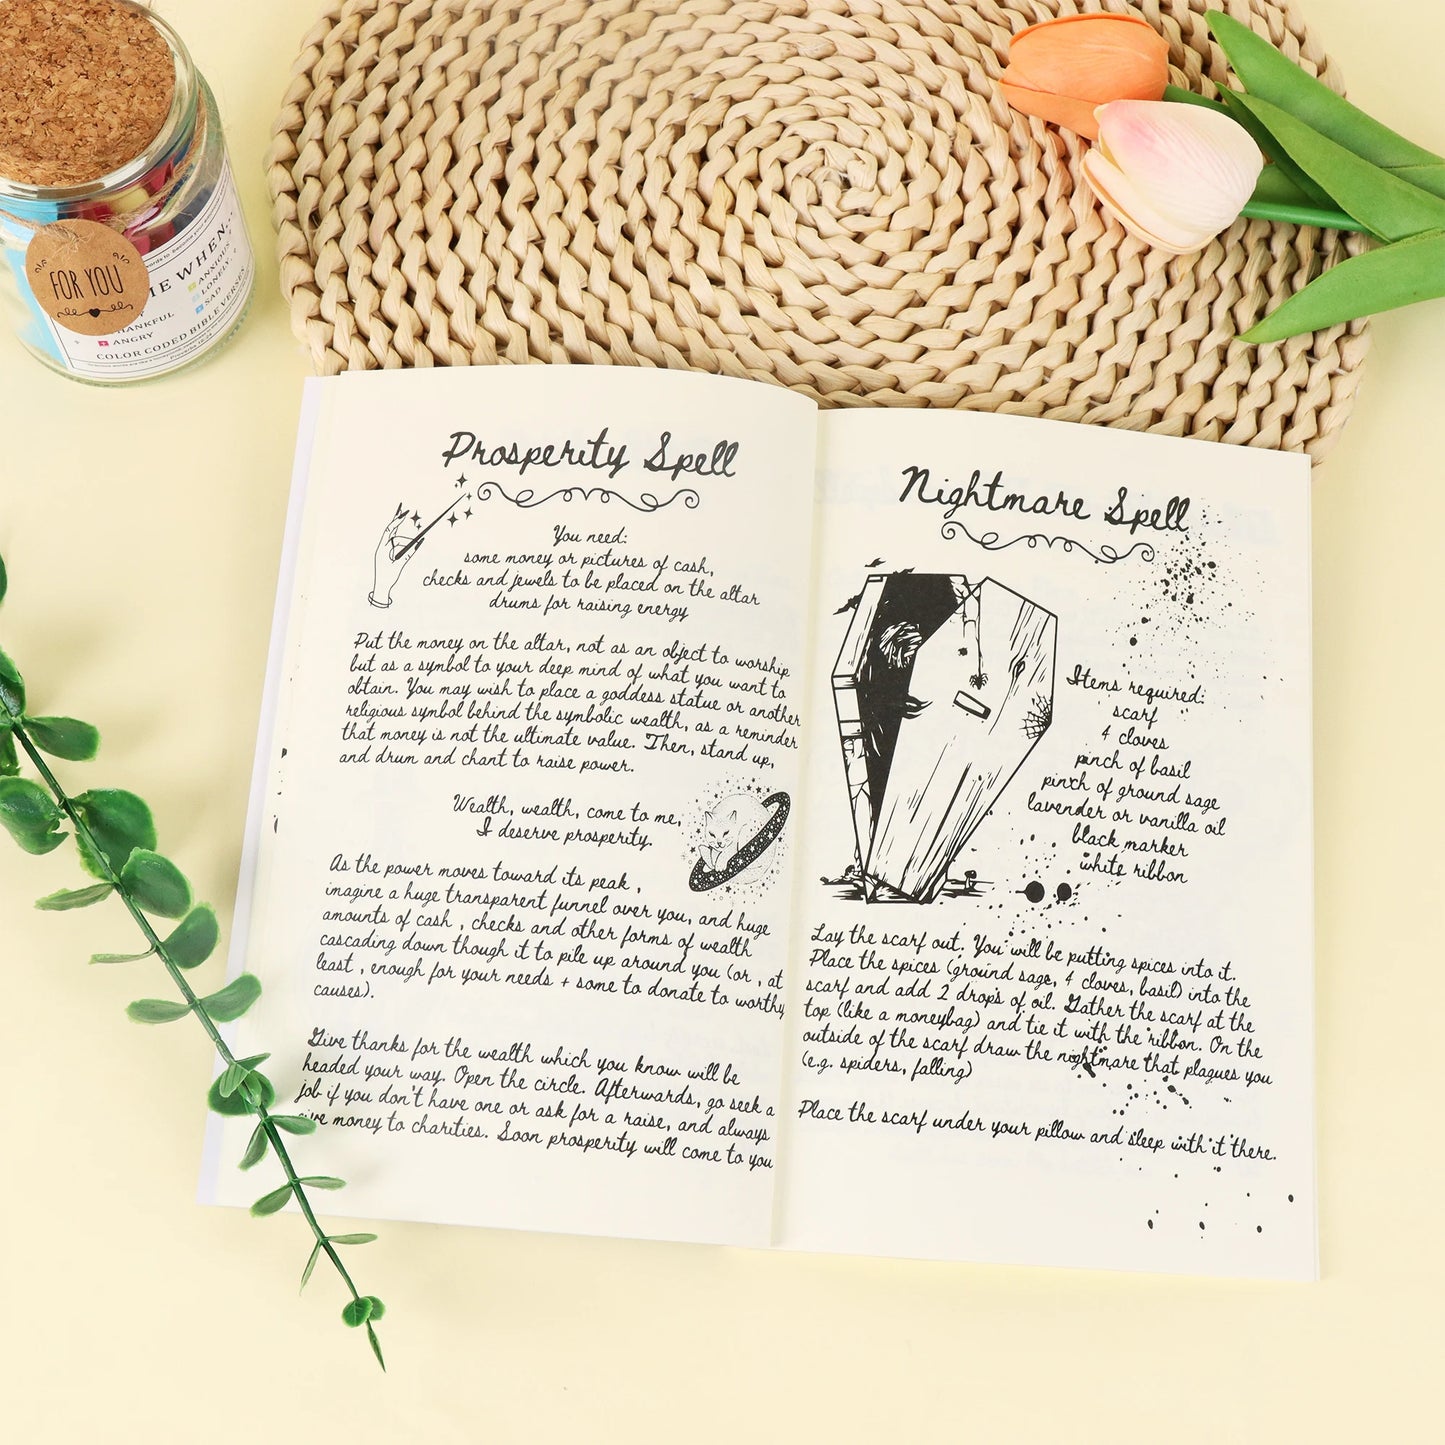 FOR YOU
ME WHEN...
ANXIOUS
LONELY
SAD
THANKFUL
ANGRY
COLOR CODED BIBLE VERSES
Prosperity Spell
You need:
some money or pictures of cash,
checks and jewels to be placed on the altar
drums for raising energy
Put the money on the altar, not as an object to worship
but as a symbol to your deep mind of what you want to
obtain. You may wish to place a goddess statue or another
religious symbol behind the symbolic wealth, as a reminder
that money is not the ultimate value. Then, stand up,
and drum and chant to raise power.
Wealth, wealth, come to me,
I deserve prosperity.
As the power moves toward its peak ,
imagine a huge transparent funnel over you, and huge
amounts of cash , checks and other forms of wealth
cascading down though it to pile up around you (or , at
least , enough for your needs + some to donate to worthy
causes).
Give thanks for the wealth which you know will be
headed your way. Open the circle. Afterwards, go seek a
job if you don't have one or ask for a raise, and always
give money to charities. Soon prosperity will come to you
Nightmare Spell
Items required:
scarf
4 cloves
pinch of basil
pinch of ground sage
lavender or vanilla oil
black marker
white ribbon
Lay the scarf out. You will be putting spices into it.
Place the spices (ground sage, 4 cloves, basil) into the
scarf and add 2 drops of oil. Gather the scarf at the
top (like a moneybag) and tie it with the ribbon. On the
outside of the scarf draw the nightmare that plagues you
(e.g. spiders, falling)
Place the scarf under your pillow and sleep with it there.